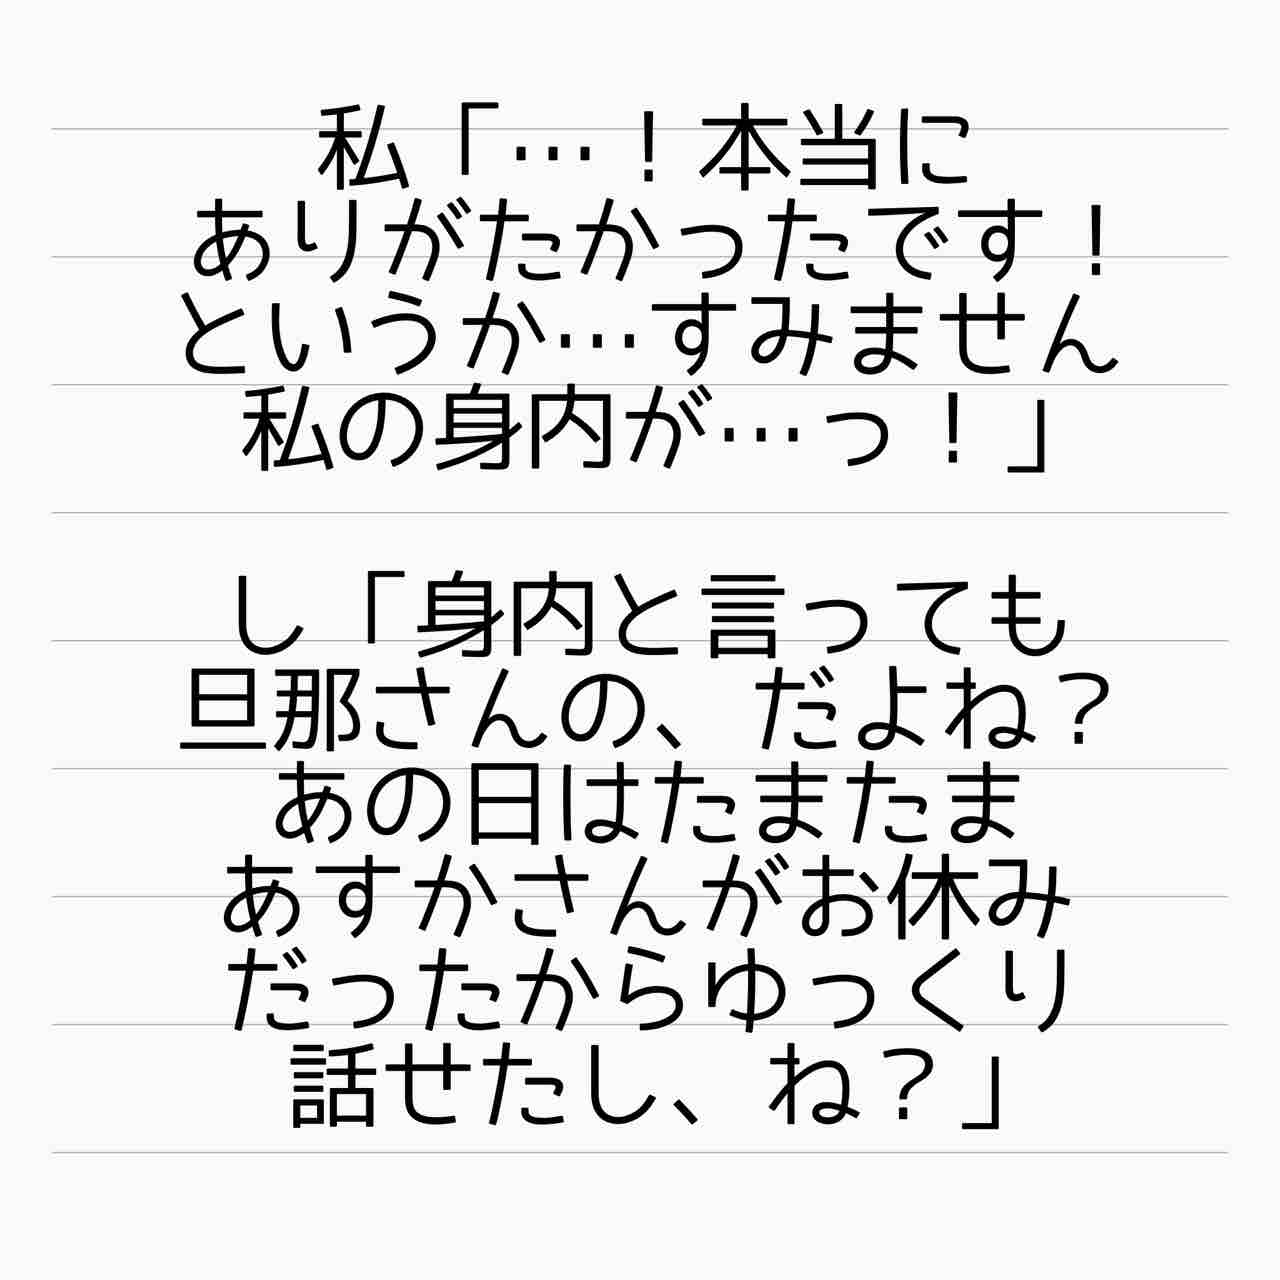 私「…！本当に
ありがたかったです！
というか…すみません
私の身内が…っ！」
し「身内と言っても
旦那さんの、だよね？
あの日はたまたま
あすかさんがお休み
だったからゆっくり
話せたし、ね？」